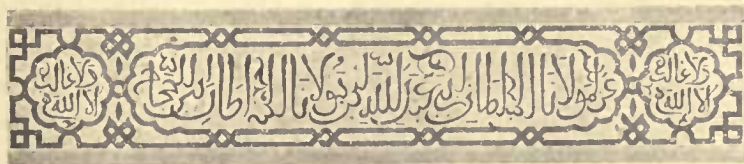 ولا غالب
الا الله
عز لمولانا السلطان ابي عبد الله بن مولانا السلطان ابي الحجاج
ولا غالب
الا الله